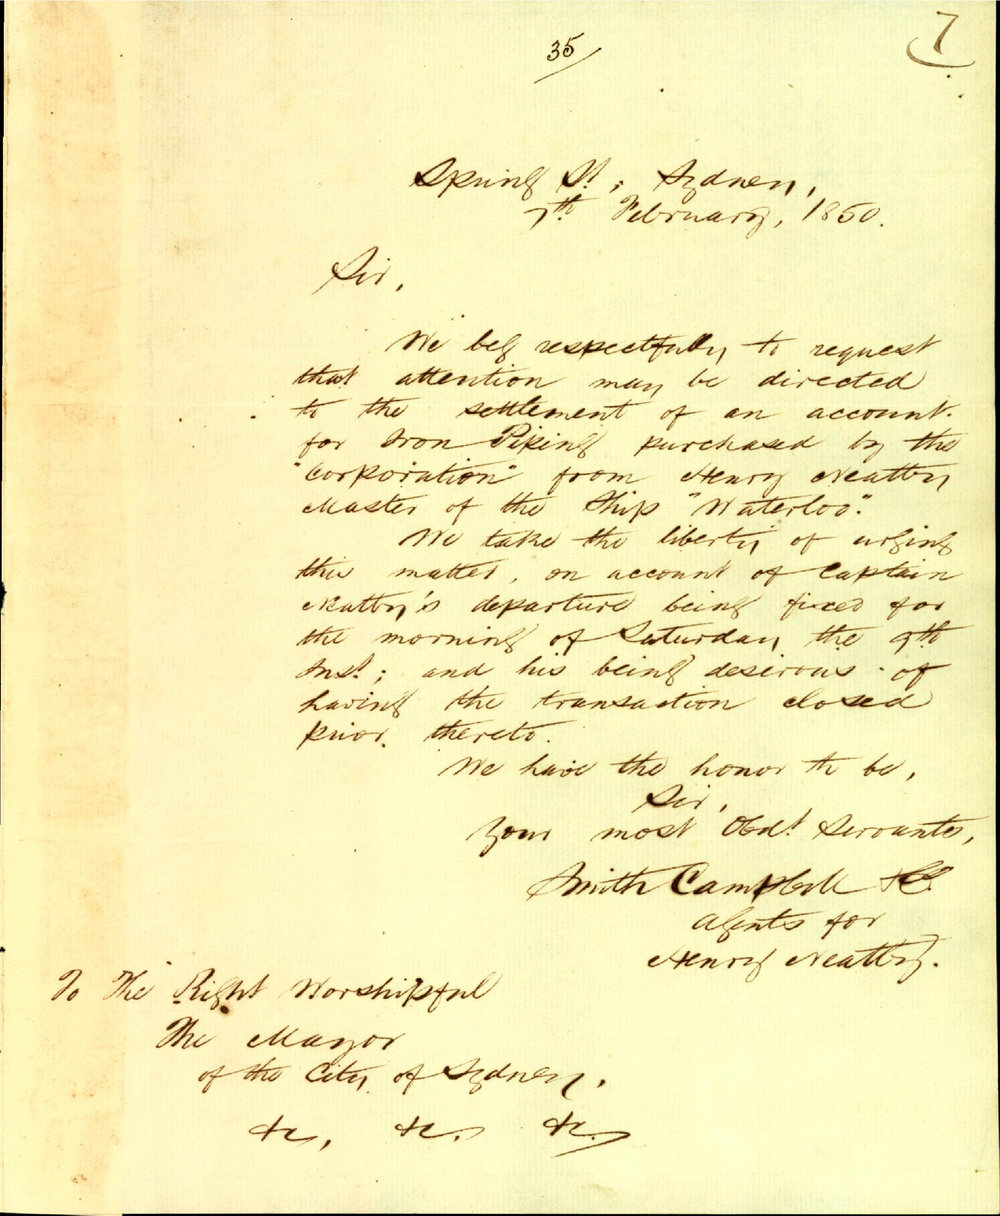 35/
7
Spring St; Sydney,
7th February, 1850.
Sir,
We beg respectfully to request
that attention may be directed
to the settlement of an account.
for Iron Piping purchased by the
"Corporation" from Henry Neatby
Master of the Ship "Waterloo."
We take the liberty of urging
this matter, on account of Captain
Neatby's departure being fixed for
the morning of Saturday the 9th
Inst; and his being desirous of
having the transaction closed
prior thereto.
We have the honor to be,
Sir,
Your most Obdt Servants,
Smith Campbell & Co.
Agents for
Henry Neatby.
To The Right Worshipful
The Mayor
of the City of Sydney,
&c, &c. &c.